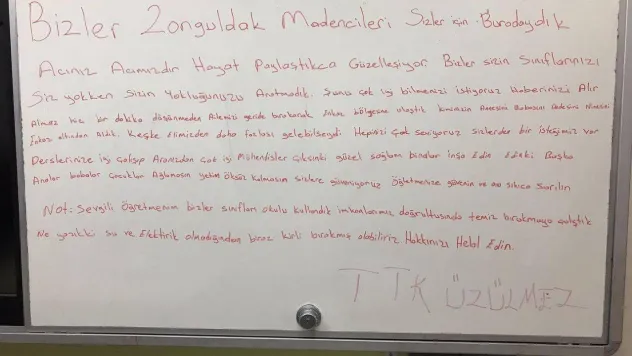 Bizler Zonguldak Madencileri Sizler için Buradaydık
Acınız Acımızdır Hayat Paylaştıkca Güzelleşiyor Bizler sizin Sınıflarınızı
Siz yokken Sizin Yokluğunuzu Aratmadık. Şunu çok iyi bilmenizi istiyoruz Haberinizi Alır
Almaz biz bir dakika düşünmeden Ailemizi geride bırakarak Enkaz bölgesine ulaştık kimimizin Annesini Babasını
Enkaz altından Aldık. Keşke Elimizden daha fazlası gelebilseydi Hepinizi çok seviyoruz sizlerden bir isteğimiz var
Derslerinize iyi çalışıp Aranızdan çok iyi Mühendisler çıksınki güzel sağlam binalar inşa Edin Başka
Analar babalar çocuklar Ağlamasın yetim öksüz kalmasın sizlere güveniyoruz Öğretmenize güvenin ve sıkıca Sarılın
Not: Sevgili Öğretmenim bizler sınıfları okulu kullandık imkanlarımız doğrultusunda temiz bırakmaya çalıştık
Ne yazıkki su ve Elektirik olmadığından biraz kirli bırakmış olabiliriz Hakkınızı Helal Edin.
TTK ÜZÜLMEZ